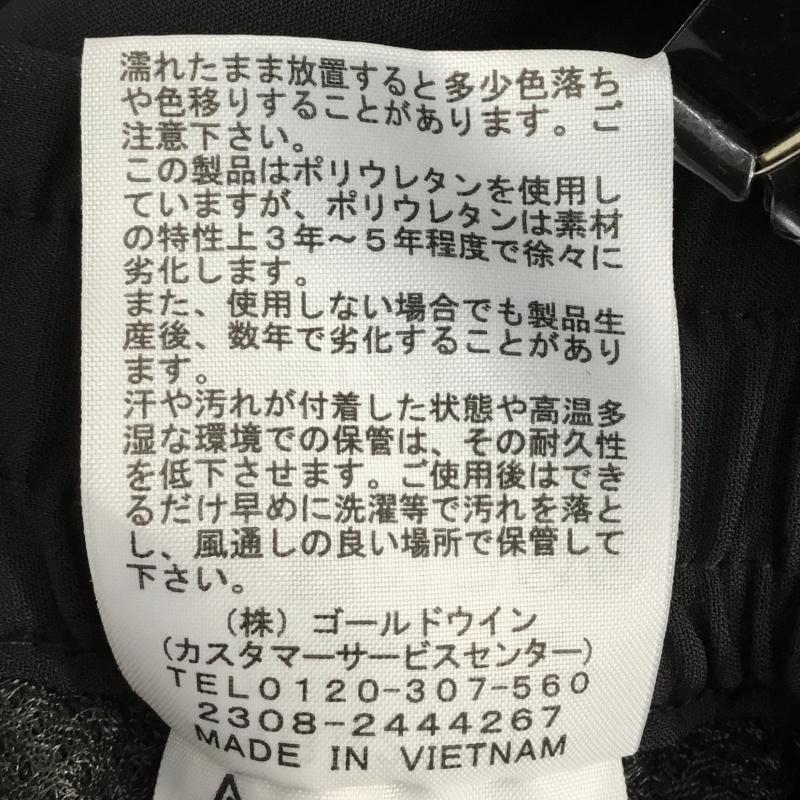 濡れたまま放置すると多少色落ち
や色移りすることがあります。ご
注意下さい。
この製品はポリウレタンを使用し
ていますが、ポリウレタンは素材
の特性上3年～5年程度で徐々に
劣化します。
また、使用しない場合でも製品生
産後、数年で劣化することがあり
ます。
汗や汚れが付着した状態や高温多
湿な環境での保管は、その耐久性
を低下させます。ご使用後はでき
るだけ早めに洗濯等で汚れを落と
し、風通しの良い場所で保管して
下さい。
(株)ゴールドウイン
(カスタマーサービスセンター)
TEL0120-307-560
2308-2444267
MADE IN VIETNAM